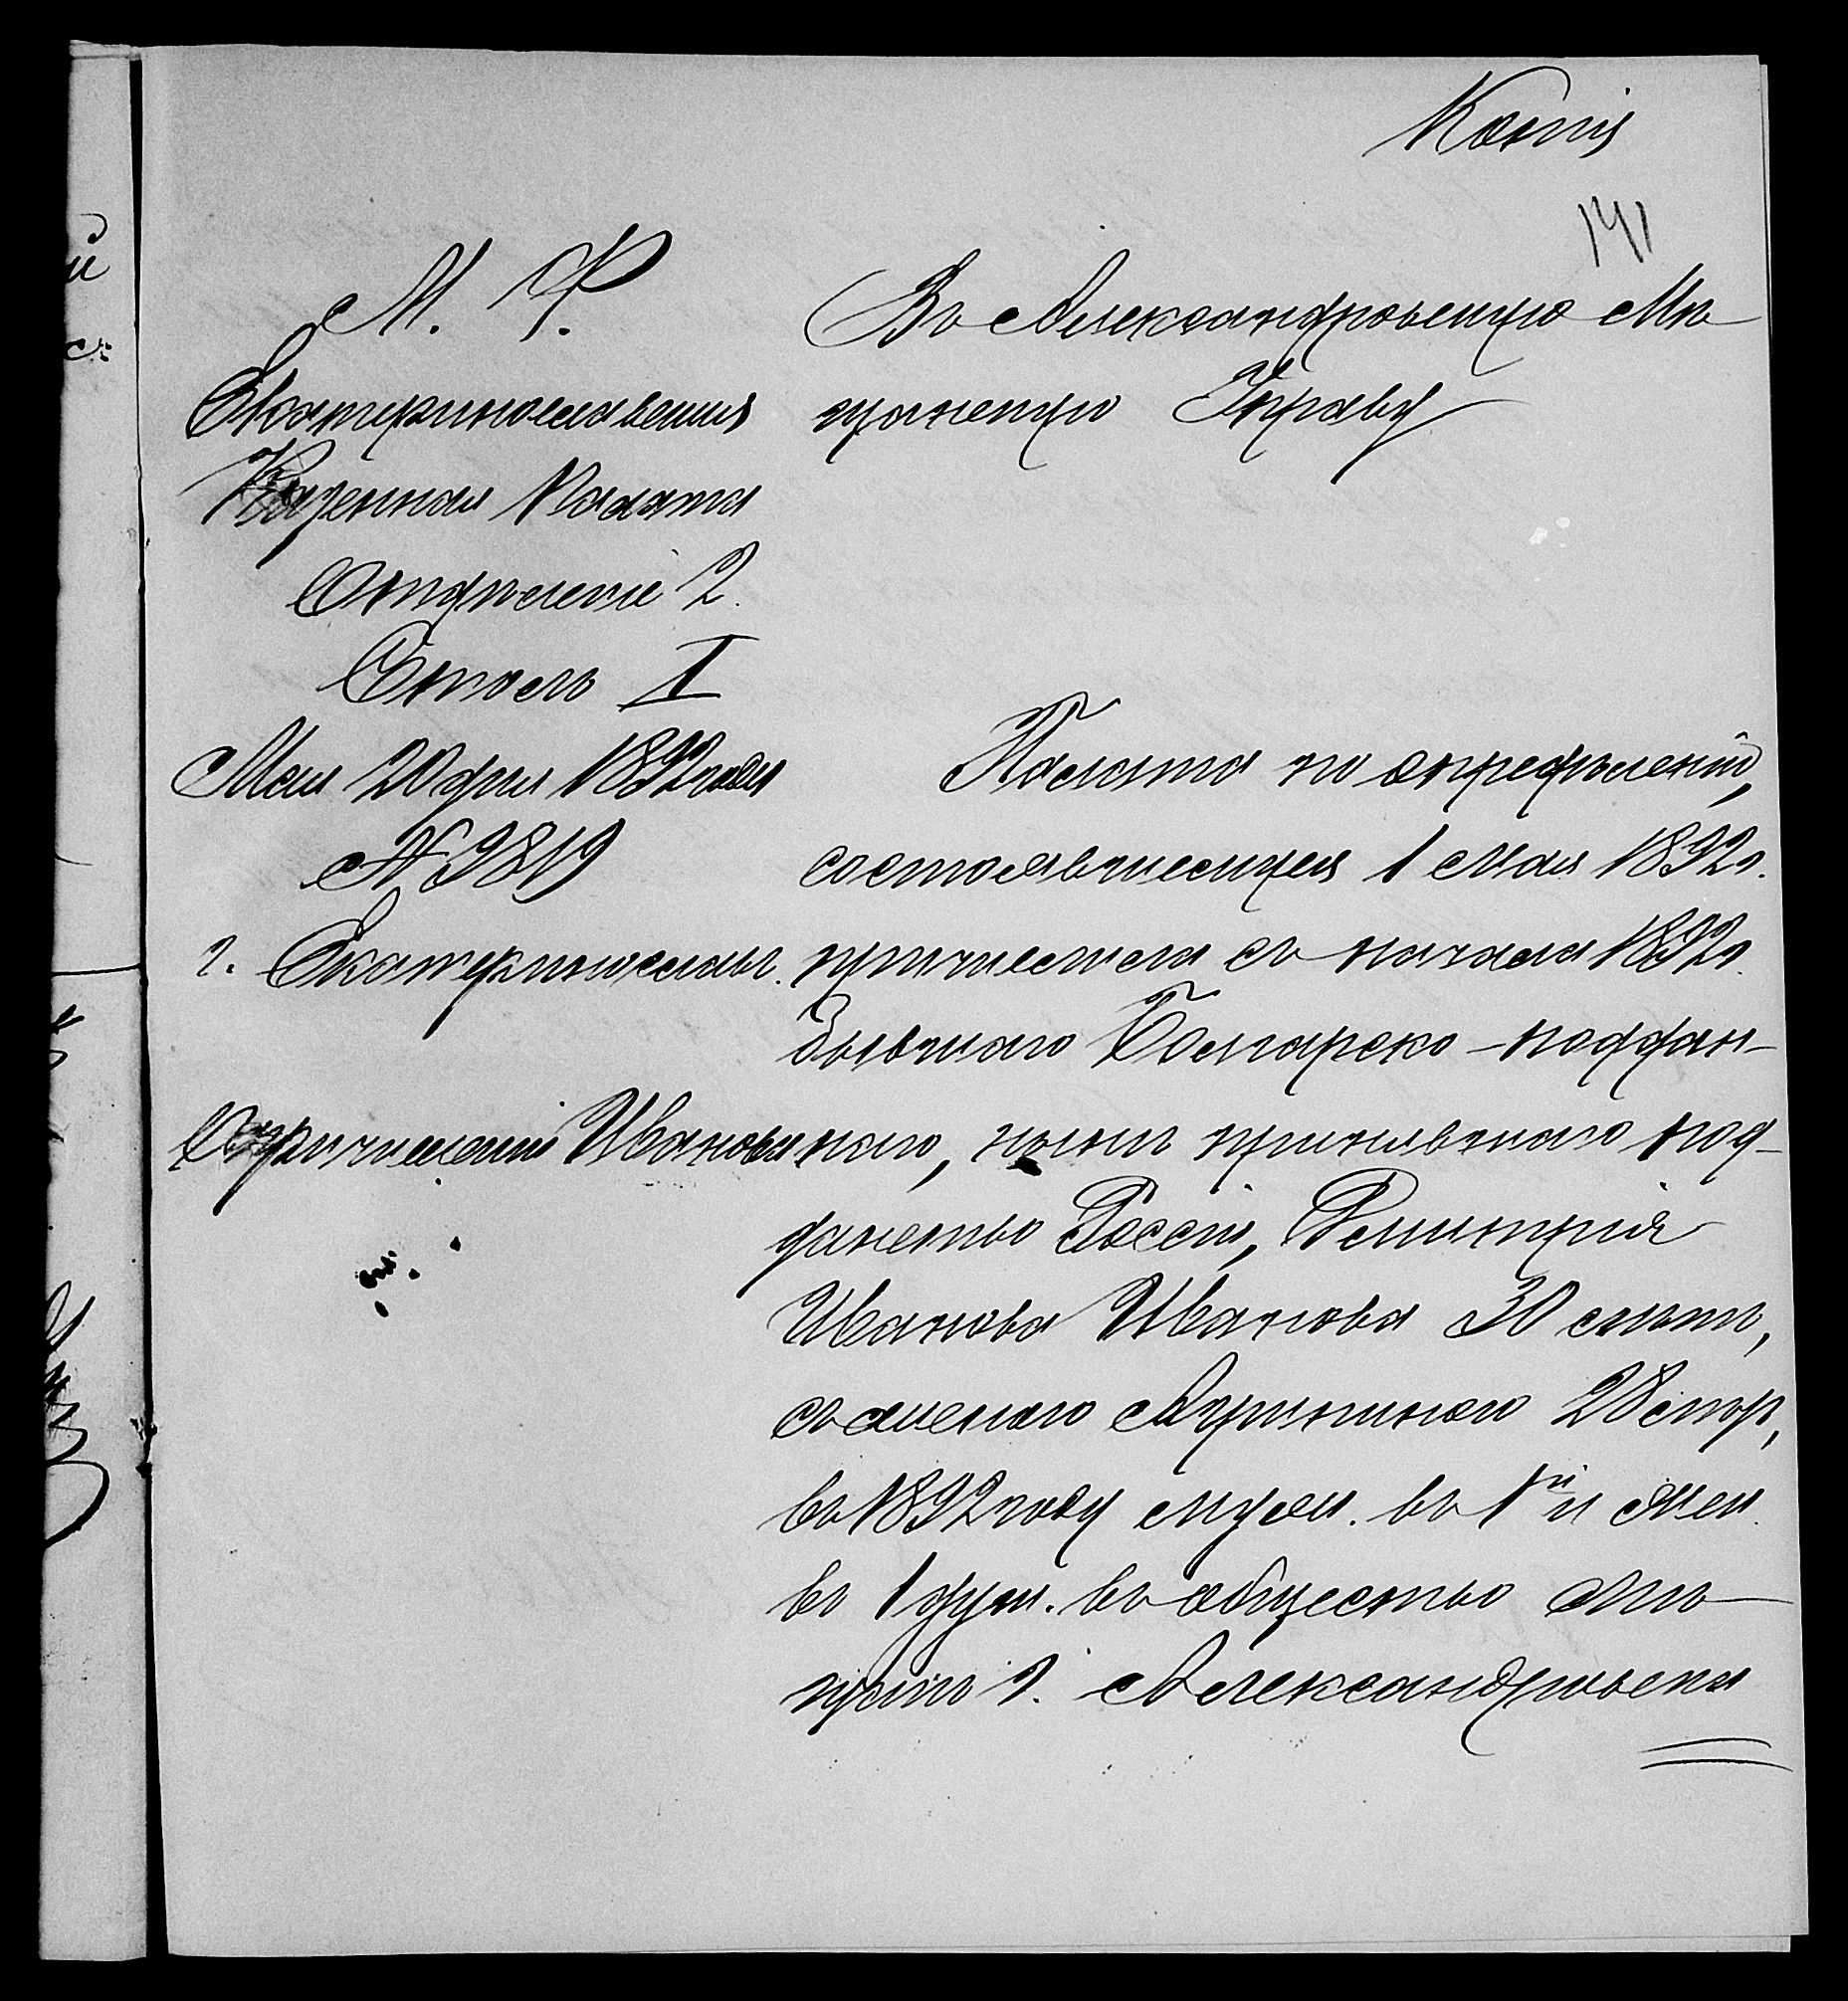 Копія
141
М. Ф.
Екатеринославская
Казенная Палата
Отдѣленіе 2.
Столъ I
Мая 20 дня 1892 года
№ 9819
г. Екатериносл​авъ.
О причисленіи Иванова
Въ Александровскую Мѣ-
щанскую Управу
Палата по опредѣленію,
состоявшемуся 1 Мая 1892 г.
причислила съ начала 1892 г.
бывшаго Болгарско-поддан-
наго, нынѣ принявшаго под-
данство Россіи, Димитрія
Иванова Иванова 30 лѣтъ,
съ женою 28 лѣтъ,
въ 1892 году въ 1й и
въ 1 душ. въ общество мѣ-
щанъ г. Александровска